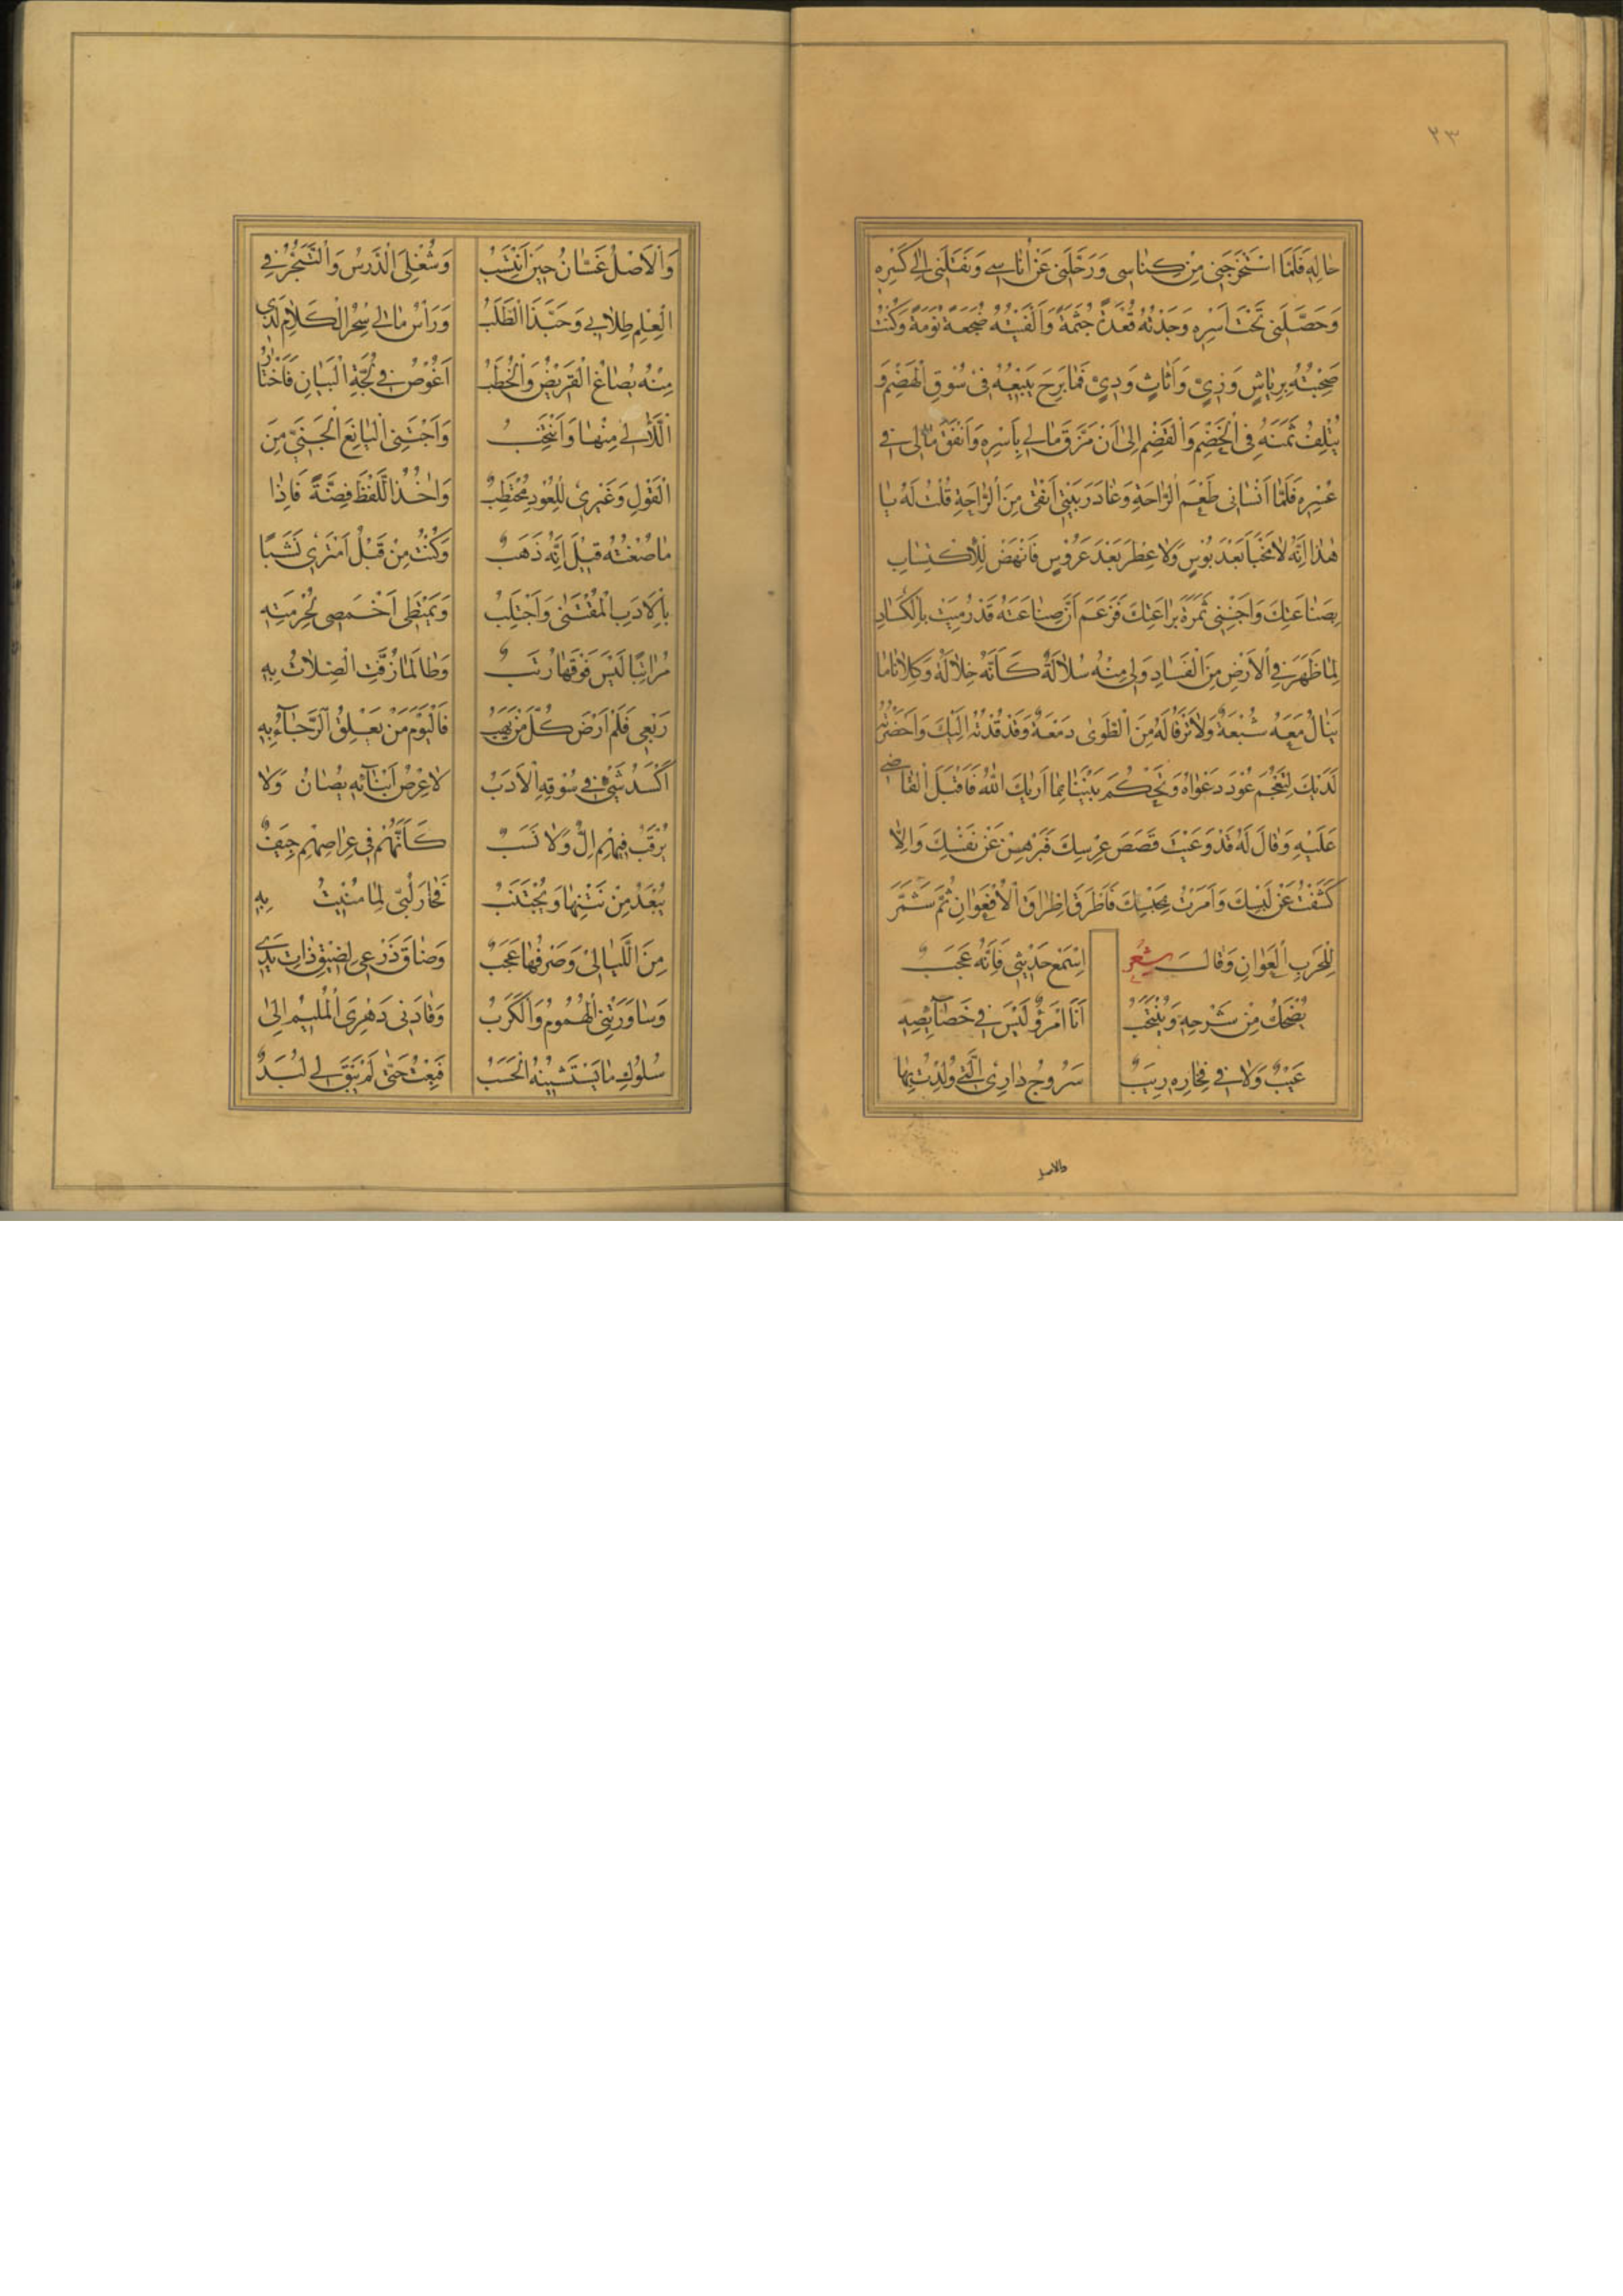 ٢٣
حَالِهِ فَلَمَّا اسْتَخْرَجَنِي مِنْ كِنَاسِي وَرَحَّلَنِي عَنْ أُنَاسِي وَنَقَلَنِي إِلَى كِسْرِهِ
وَحَصَّلَنِي تَحْتَ أَسْرِهِ وَجَدْتُهُ قُعَدَةً جُثَمَةً وَأَلْفَيْتُهُ ضُجَعَةً نُوَمَةً وَكُنْتُ
صَحِبْتُهُ بِرِيَاشٍ وَزِيٍّ وَأَثَاثٍ وَرِيٍّ فَمَا بَرِحَ يَبِيعُهُ فِي سُوقِ الْهَضْمِ وَ
يُتْلِفُ ثَمَنَهُ فِي الْخَضْمِ وَالْقَضْمِ إِلَى أَنْ مَزَّقَ مَالِي بِأَسْرِهِ وَأَنْفَقَ مَالِي فِي
عُسْرِهِ فَلَمَّا أَنْسَانِي طَعْمَ الرَّاحَةِ وَغَادَرَ بَيْتِي أَنْقَى مِنَ الرَّاحَةِ قُلْتُ لَهُ يَا
هٰذَا إِنَّهُ لَا مَخْبَأَ بَعْدَ بُوسٍ وَلَا عِطْرَ بَعْدَ عَرُوسٍ فَانْهَضْ لِلْاكْتِسَابِ
بِصَنَاعَتِكَ وَاجْنِنِي ثَمَرَةَ بَرَاعَتِكَ فَزَعَمَ أَنَّ صِنَاعَتَهُ قَدْ رُمِيَتْ بِالْكَسَادِ
لِمَا ظَهَرَ فِي الْأَرْضِ مِنَ الْفَسَادِ وَلِي مِنْهُ سُلَالَةٌ كَأَنَّهُ خِلَالَةٌ وَكِلَانَا مَا
يَنَالُ مَعَهُ شُبْعَةً وَلَا تَرْقَأُ لَهُ مِنَ الطَّوَى دَمْعَةٌ وَقَدْ قُدْتُهُ إِلَيْكَ وَأَحْضَرْتُهُ
لَدَيْكَ لِتَعْجُمَ عُودَ دَعْوَاهُ وَتَحْكُمَ بَيْنَنَا بِمَا أَرَاكَ اللهُ فَأَقْبَلَ الْقَاضِي
عَلَيْهِ وَقَالَ لَهُ قَدْ وَعَيْتَ قَصَصَ عِرْسِكَ فَبَرْهِنْ عَنْ نَفْسِكَ وَإِلَّا
كَشَفْتُ عَنْ لَبْسِكَ وَأَمَرْتُ بِحَبْسِكَ فَأَطْرَقَ إِطْرَاقَ الْأُفْعُوَانِ ثُمَّ شَمَّرَ
لِلْحَرْبِ الْعَوَانِ وَقَالَ شِعْرٌ اِسْمَعْ حَدِيثِي فَإِنَّهُ عَجَبٌ
يُضْحَكُ مِنْ شَرْحِهِ وَيُنْتَحَبُ أَنَا امْرُؤٌ لَيْسَ فِي خَصَائِصِهِ
عَيْبٌ وَلَا فِي فِخَارِهِ رِيَبٌ سَرُوجُ دَارِي الَّتِي وُلِدْتُ بِهَا
والاصل
وَالْأَصْلُ غَسَّانُ حِينَ أَنْتَسِبُ وَشُغْلِيَ الدَّرْسُ وَالتَّبَحُّرُ فِي
الْعِلْمِ طِلَابِي وَحَبَّذَا الطَّلَبُ وَرَأْسُ مَالِي سِحْرُ الْكَلَامِ الَّذِي
مِنْهُ يُصَاغُ الْقَرِيضُ وَالْخُطَبُ أَغُوصُ فِي لُجَّةِ الْبَيَانِ فَأَخْتَارُ
اللَّآلِي مِنْهَا وَأَنْتَخِبُ وَأَجْتَنِي الْيَانِعَ الْجَنِيَّ مِنَ
الْقَوْلِ وَغَيْرِي لِلْعُودِ مُحْتَطِبٌ وَآخُذُ اللَّفْظَ فِضَّةً فَإِذَا
مَا صُغْتُهُ قِيلَ إِنَّهُ ذَهَبٌ وَكُنْتُ مِنْ قَبْلُ أَمْتَرِي نَشَبًا
بِالْأَدَبِ الْمُقْتَنَى وَأَجْتَلِبُ وَيَمْتَطِي أَخْمَصِي لِحُرْمَتِهِ
مَرَاتِبًا لَيْسَ فَوْقَهَا رُتَبٌ وَطَالَمَا زُفَّتِ الصِّلَاتُ بِهِ
رَبْعِي فَلَمْ أَرْضَ كُلَّ مَنْ يَهَبُ فَالْيَوْمَ مَنْ يَعْلَقُ الرَّجَاءُ بِهِ
أَكْسَدُ شَيْءٍ فِي سُوقِهِ الْأَدَبُ لَا عِرْضُ أَبْنَائِهِ يُصَانُ وَلَا
يُرْقَبُ فِيهِمْ إِلٌّ وَلَا نَسَبٌ كَأَنَّهُمْ فِي عِرَاصِهِمْ جِيَفٌ
يُبْعَدُ مِنْ نَتْنِهَا وَيُجْتَنَبُ فَحَارَ لُبِّي لِمَا مُنِيتُ بِهِ
مِنَ اللَّيَالِي وَصَرْفُهَا عَجَبٌ وَضَاقَ ذَرْعِي لِضِيقِ ذَاتِ يَدِي
وَسَاوَرَتْنِي الْهُمُومُ وَالْكُرَبُ وَقَادَنِي دَهْرِيَ الْمُلِيمُ إِلَى
سُلُوكِ مَا يَسْتَشِينُهُ الْحَسَبُ فَبِعْتُ حَتَّى لَمْ يَبْقَ لِي لُبَدٌ